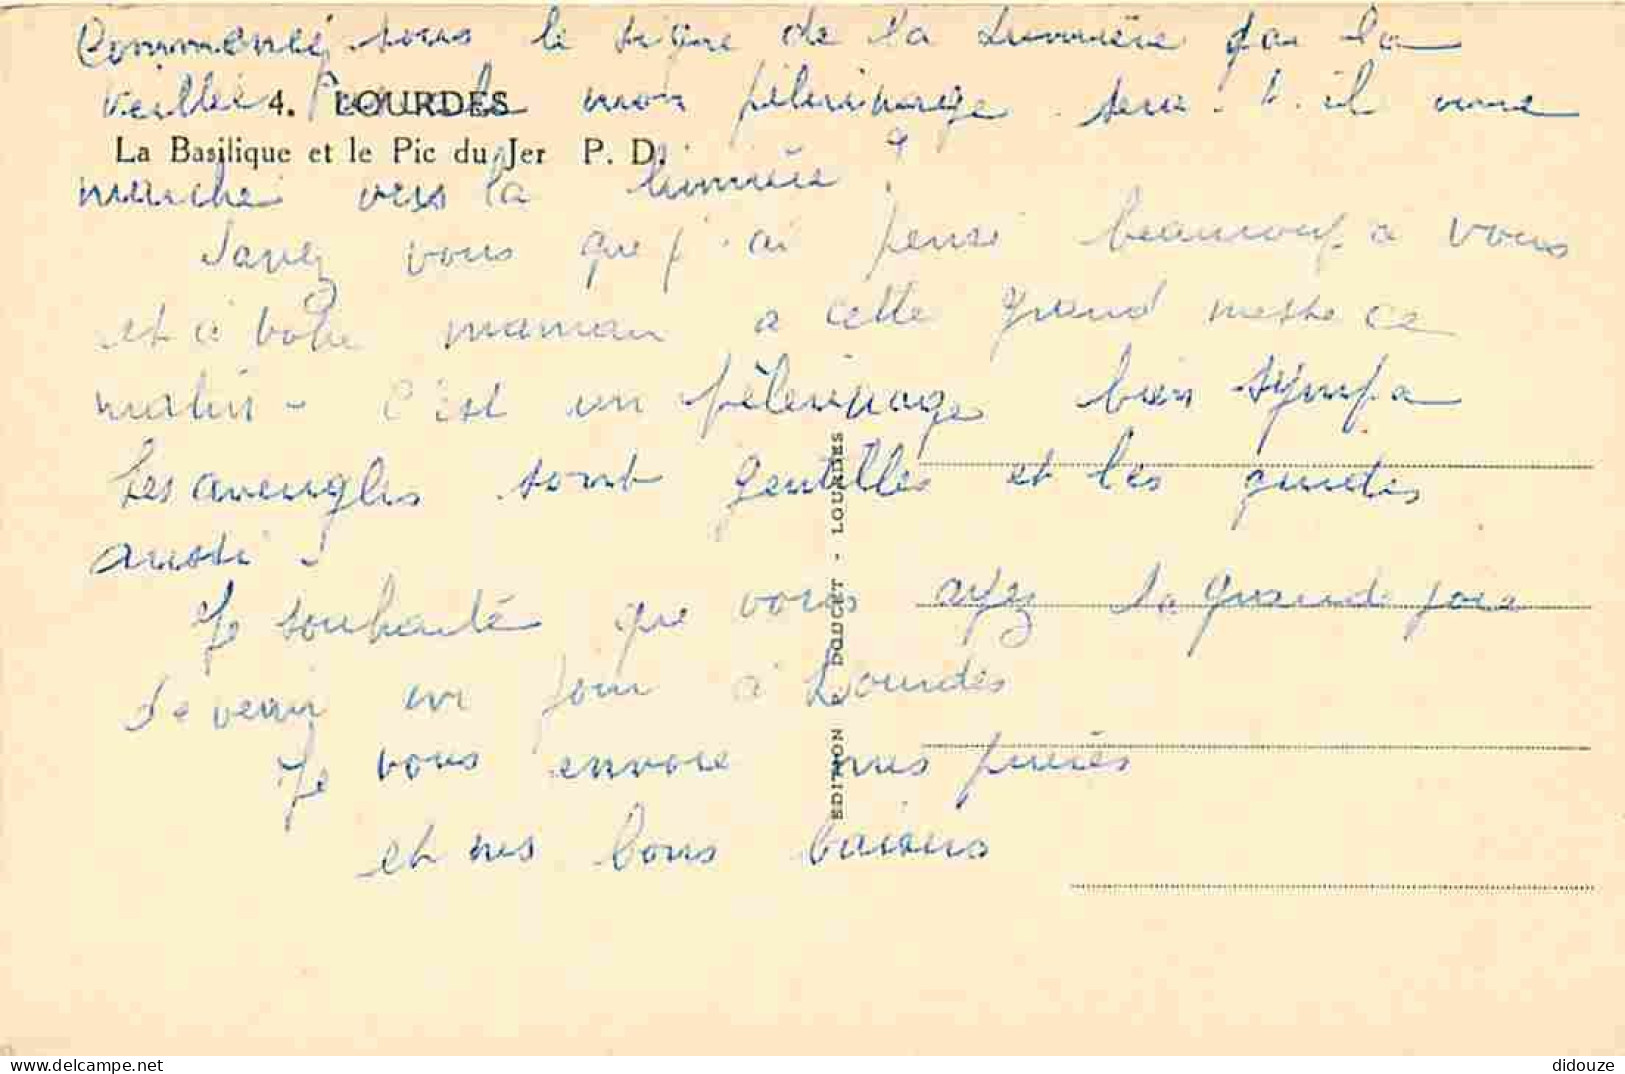 Commencé sous le signe de la Lumière par la
veillée Pascale mon pèlerinage sera-t-il une
4. LOURDES
La Basilique et le Pic du Jer P. D.
marche vers la lumière ?
Savez vous que j'ai pensé beaucoup à vous
et à votre maman a cette grand messe ce
matin - C'est un pèlerinage bien sympa
Les aveugles sont gentilles et les guides
aussi.
Je souhaite que vous ayez la grande joie
de venir un jour à Lourdes
Je vous envoie mes prières
et mes bons baisers
EDITION DOUCET - LOURDES
delcampe.net
didouze